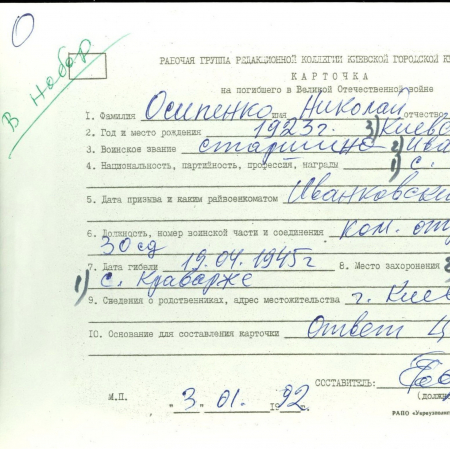 В набор
РАБОЧАЯ ГРУППА РЕДАКЦИОННОЙ КОЛЛЕГИИ КИЕВСКОЙ ГОРОДСКОЙ К
КАРТОЧКА
на погибшего в Великой Отечественной войне
I. Фамилия Осипенко имя Николай отчество
2. Год и место рождения 1923г. 3) Киевс
3. Воинское звание старшина 2) Ива
4. Национальность, партийность, профессия, награды 1) с.
5. Дата призыва и каким райвоенкоматом Иванковски
6. Должность, номер воинской части и соединения ком. от
30 сд
7. Дата гибели 19.04.1945г 8. Место захоронения
1) с. Краварже
9. Сведения о родственниках, адрес местожительства г. Киев
10. Основание для составления карточки Ответ Ц
СОСТАВИТЕЛЬ:
(должн
М.П. "3" 01. 1992 г.
РАПО «Укрвузполигр